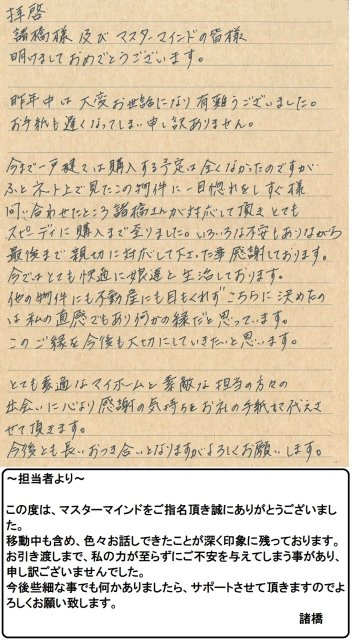 拝啓
諸橋様 及び マスターマインドの皆様
明けましておめでとうございます。
昨年中は大変お世話になり有難うございました。
お手紙も遅くなってしまい申し訳ありません。
今まで一戸建ては購入する予定は全くなかったのですが
ふとネット上で見たこの物件に一目惚れをしすぐ様
問い合わせたところ諸橋さんが対応して頂きとても
スピーディに購入まで至りました。いろいろな不安もありながら
最後まで親切に対応して下さった事感謝しております。
今ではとても快適に娘達と生活しております。
他の物件にも不動産にも目もくれずこちらに決めたの
は私の直感でもあり何かの縁だと思っています。
このご縁を今後も大切にしていきたいと思います。
とても素適なマイホームと素敵な担当の方々の
出会いに心より感謝の気持ちをお礼の手紙に代えさ
せて頂きます。
今後とも長いおつき合いとなりますがよろしくお願いします。
～担当者より～
この度は、マスターマインドをご指名頂き誠にありがとうございまし
た。
移動中も含め、色々お話しできたことが深く印象に残っております。
お引き渡しまで、私の力が至らずにご不安を与えてしまう事があり、
申し訳ございませんでした。
今後些細な事でも何かありましたら、サポートさせて頂きますのでよ
ろしくお願い致します。
諸橋